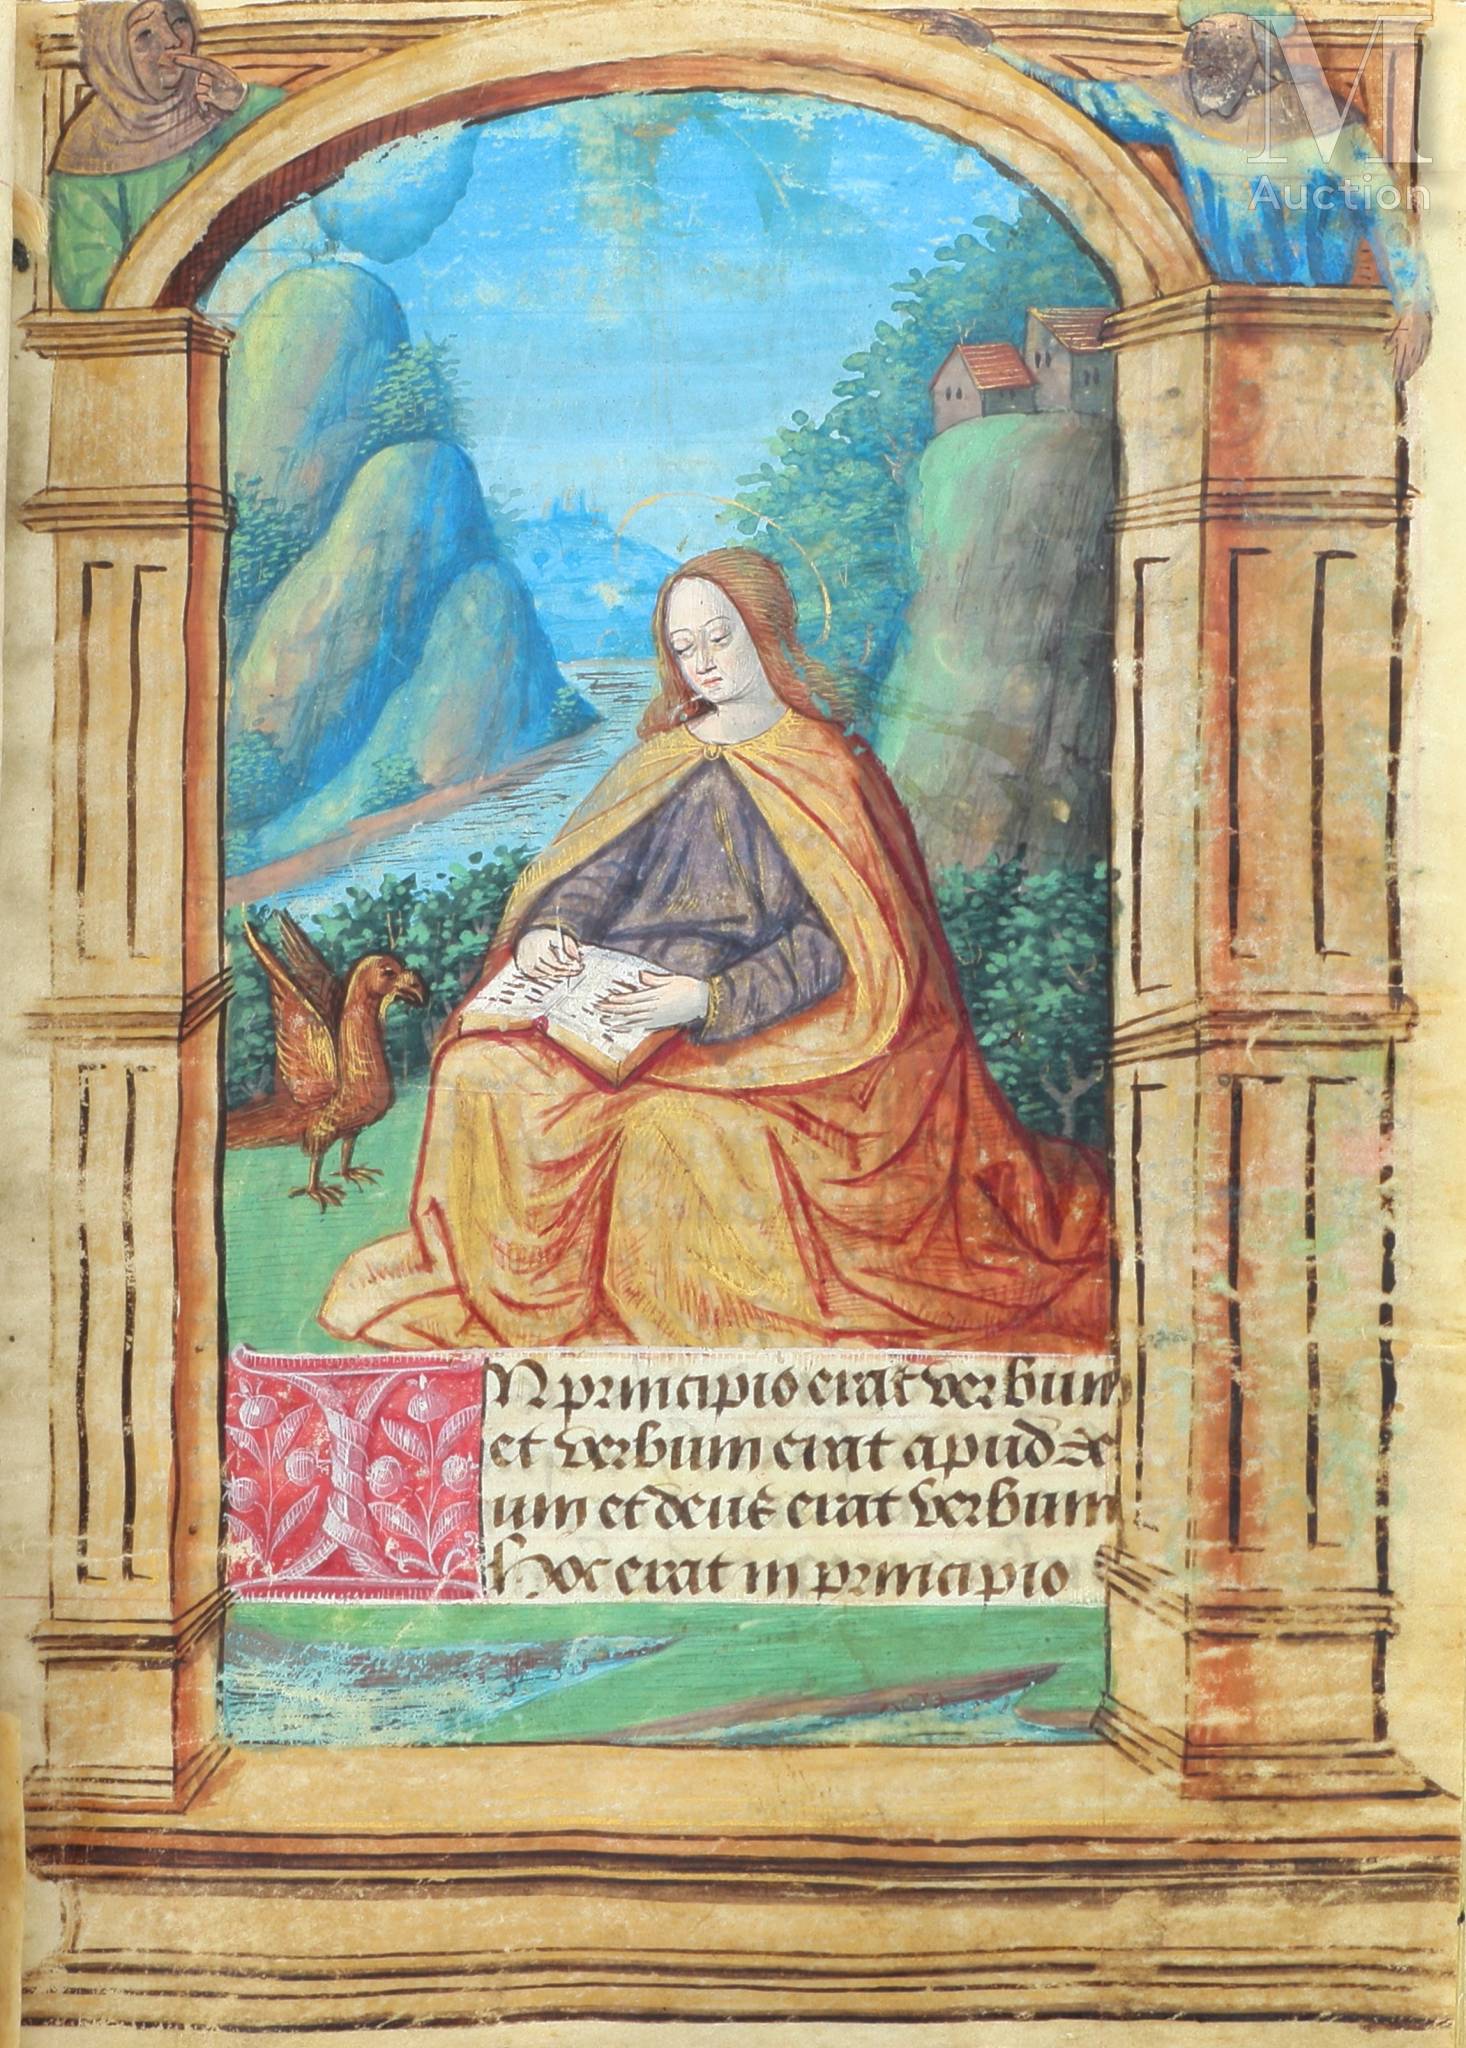 M
Auction
IN principio erat verbum
et verbum erat apud de
um et deus erat verbum
hoc erat in principio